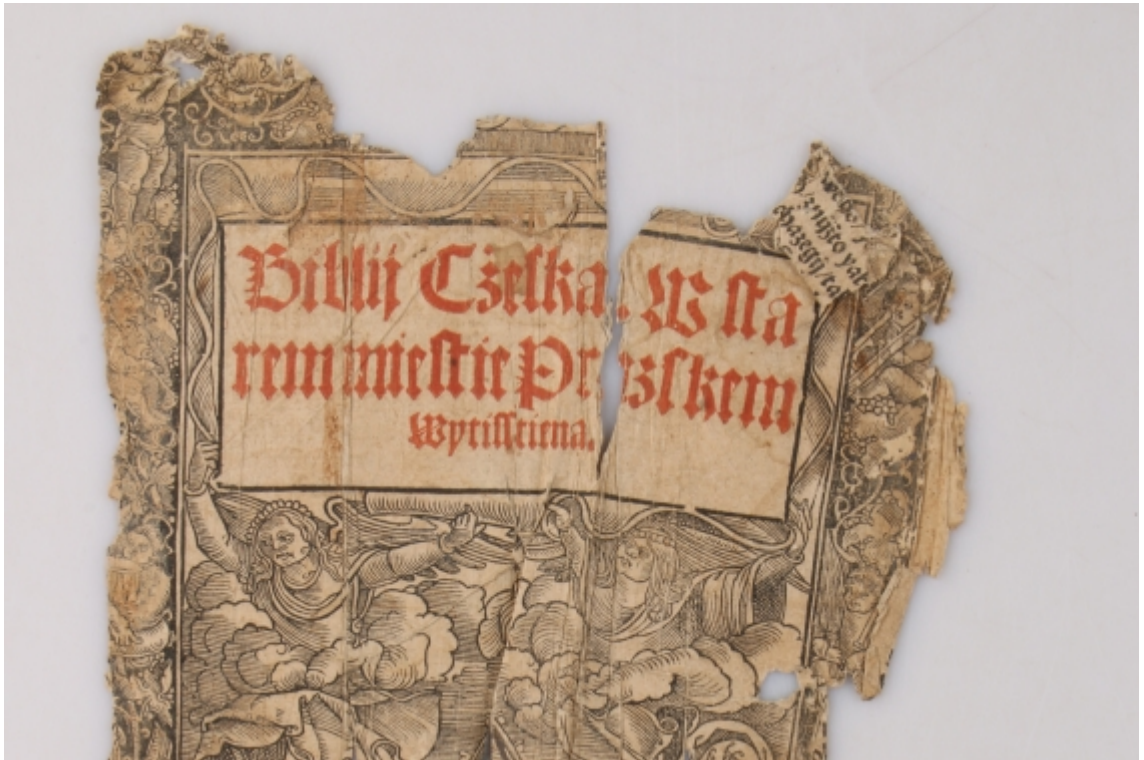 Biblij Cżeſka. W ſta
rem mieſtie Pr zſkem
Wytiſſtiena.